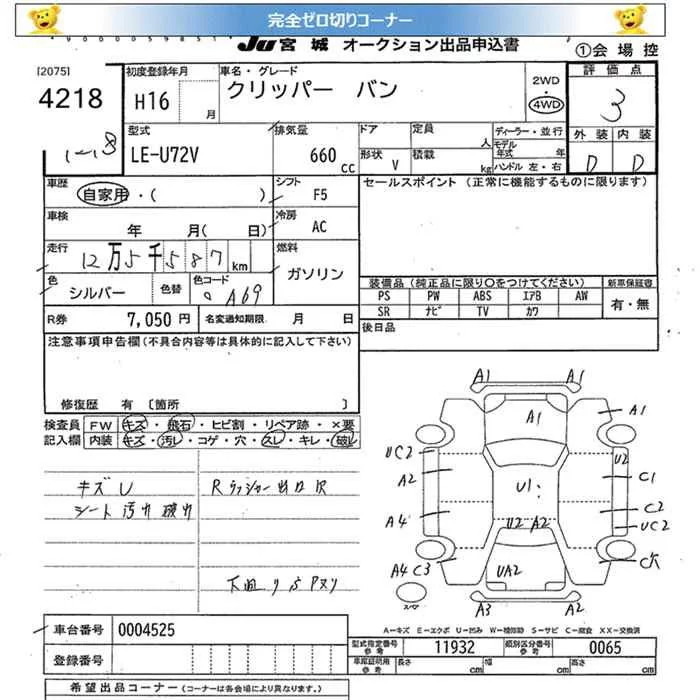 完全ゼロ切りコーナー
JU宮城 オークション出品申込書 ①会場控
[2075]
4218
初度登録年月
H16
月
車名・グレード
クリッパー バン
2WD
4WD
評価点
3
外装 内装
D D
型式
LE-U72V
排気量
660
cc
ドア
形状
V
定員
人
積載
kg
ディーラー・並行
モデル年式 年
ハンドル 左・右
車歴
自家用・( )
シフト
F5
セールスポイント (正常に機能するものに限ります)
車検
年 月( 日)
冷房
AC
走行
12万5千587km
燃料
ガソリン
色
シルバー
色替
色コード
A69
装備品 (純正品に限り○をつけてください)
PS PW ABS エアB AW
SR ナビ TV カワ
新車保証書
有・無
R券
7,050円
名変通知期限 月 日
後日品
注意事項申告欄(不具合内容等は具体的に記入して下さい)
修復歴 有 〔箇所 〕
検査員 FW キズ・飛石・ヒビ割・リペア跡・×要
記入欄 内装 キズ・汚レ・コゲ・穴・スレ・キレ・破レ
キズU
シート汚れ破れ
A1 A1
A1
A1
UC2
U2
A2
C1
U1
A4
C2
UC2
U2 A2
A4 C3
UA2
A3 A2
A−キズ E−エクボ U−凹み W−補修跡 S−サビ C−腐食 XX−交換済
車台番号
0004525
型式指定番号
参考
11932
類別区分番号
参考
0065
登録番号
車庫証明用
参考
長さ
cm
幅
cm
高さ
cm
希望出品コーナー (コーナーは各会場により異なります。)